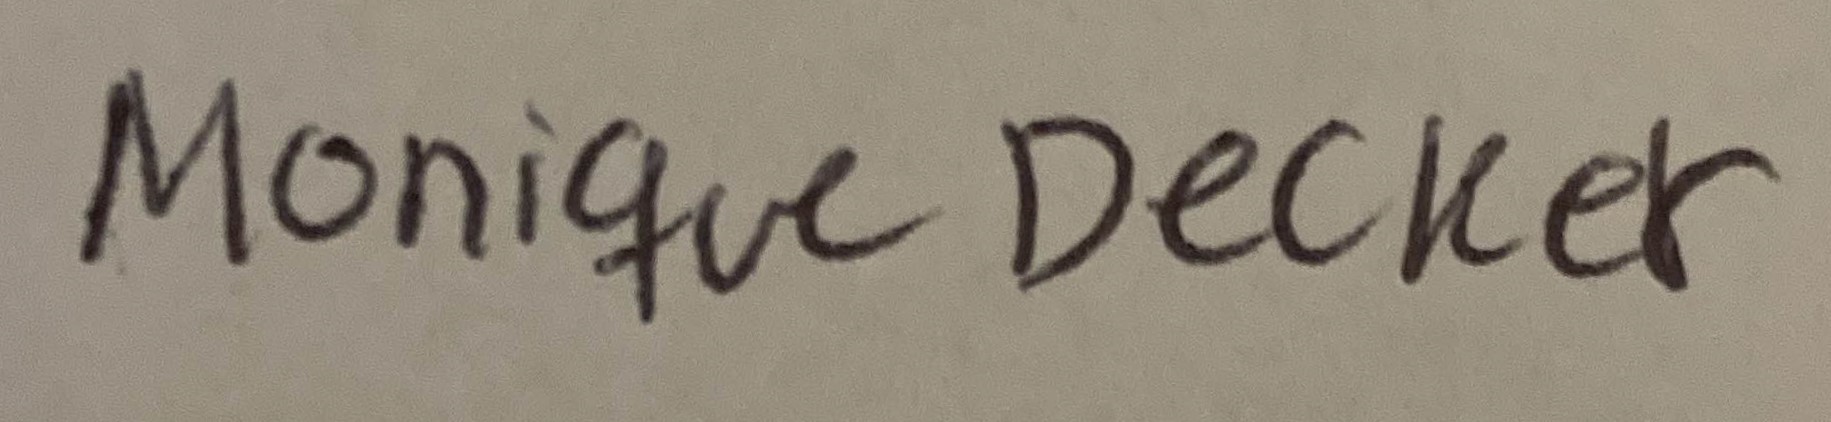 Monique Decker